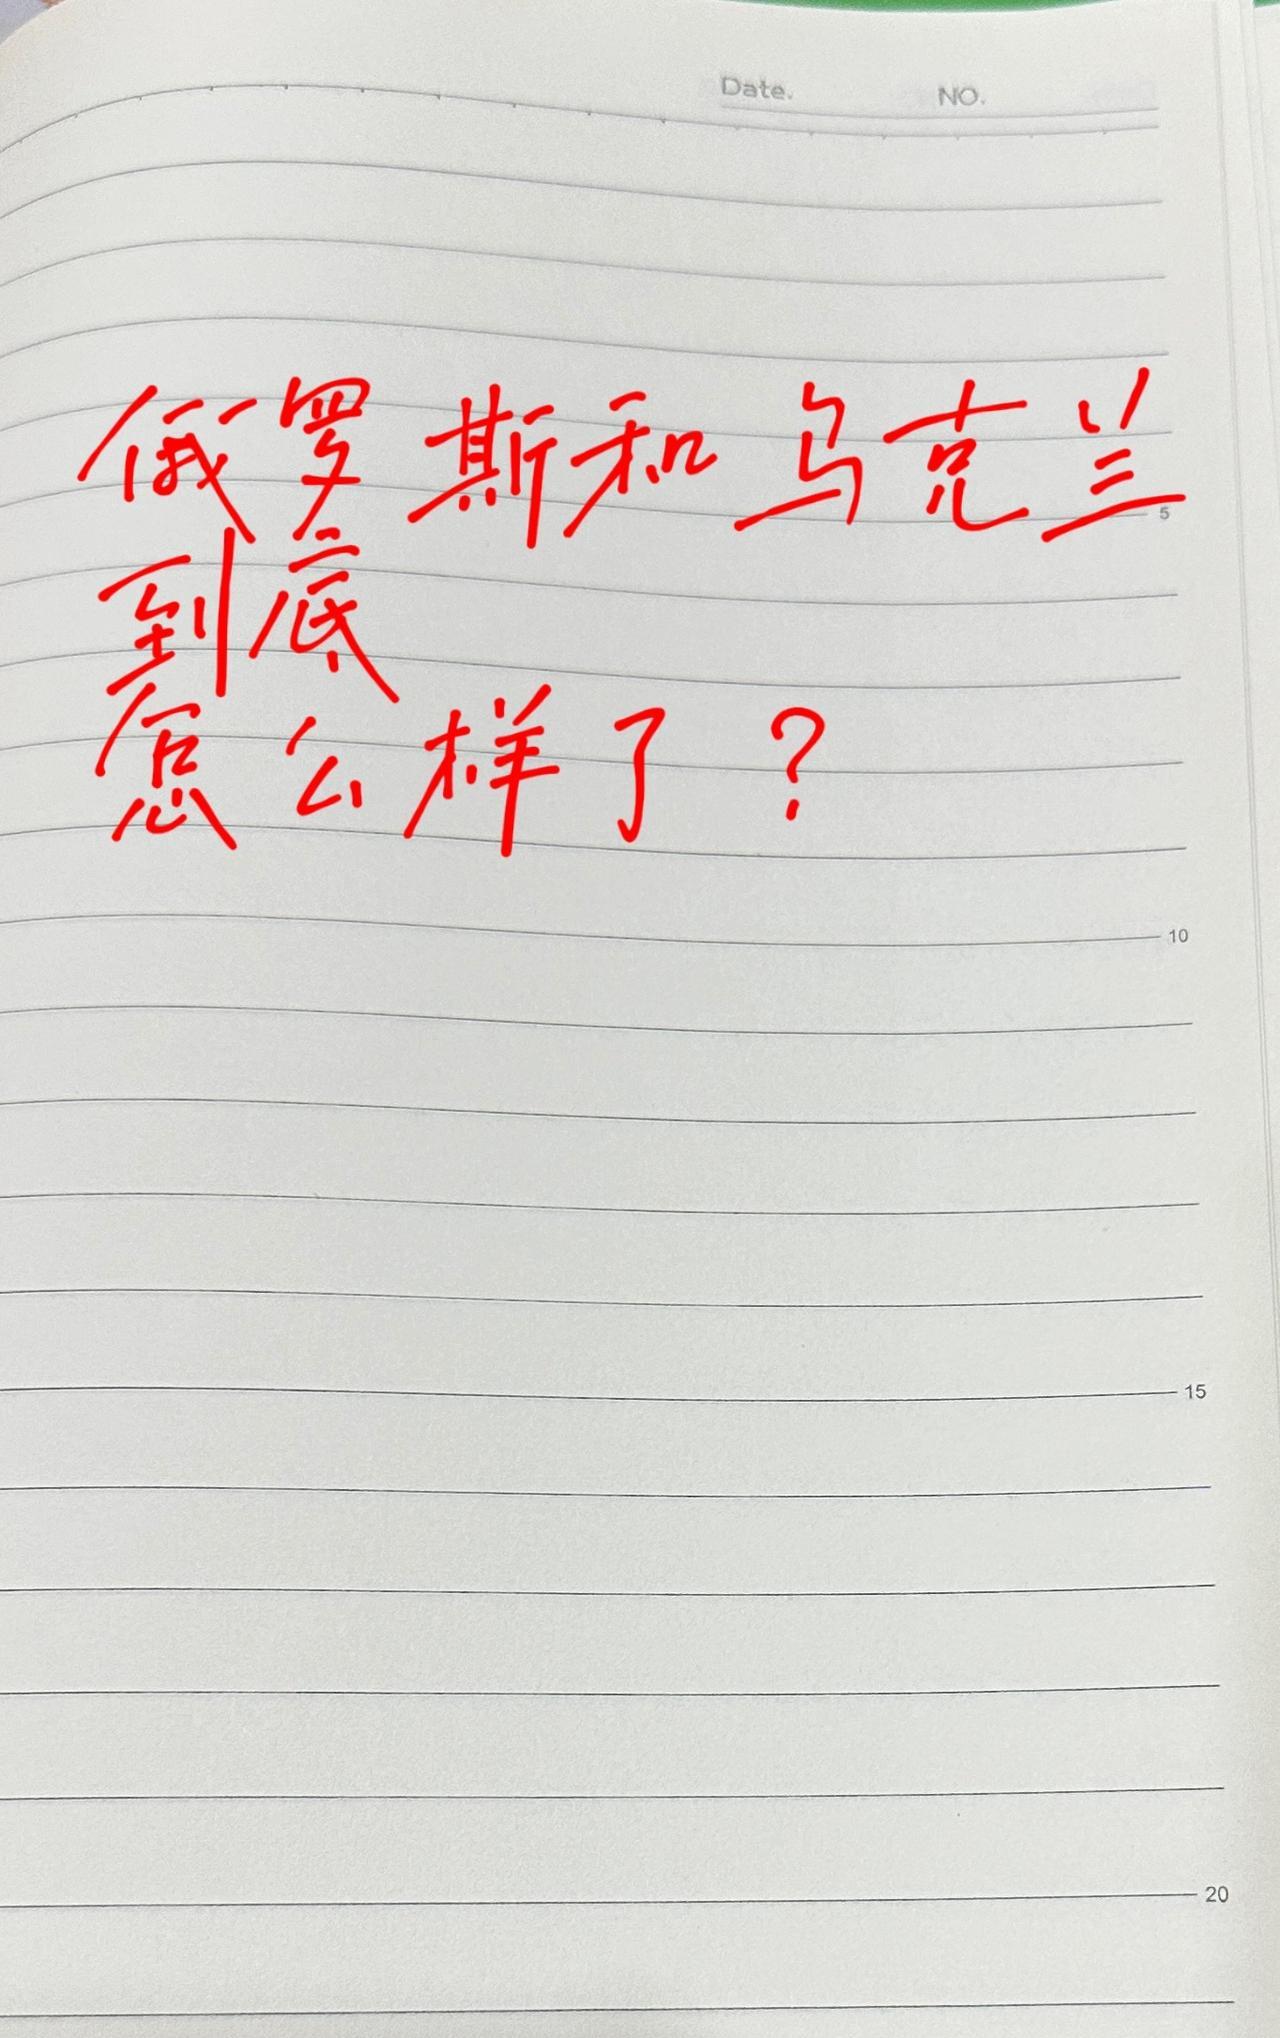 Date. NO.
俄罗斯和乌克兰
5
到底
怎么样了？
10
15
20